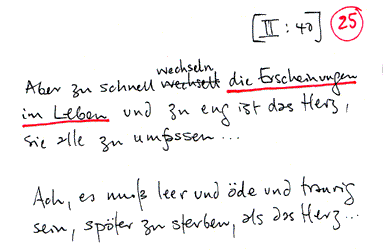 [II : 40] 25
wechseln
Aber zu schnell wechselt die Erscheinungen
im Leben und zu eng ist das Herz,
sie alle zu umfassen...
Ach, es muß leer und öde und traurig
sein, später zu sterben, als das Herz...